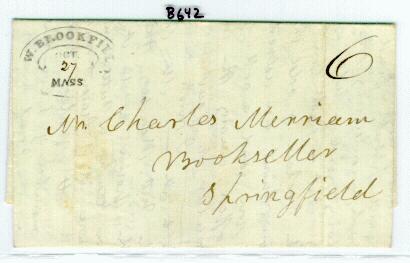 B642
W. BROOKFIELD
OCT.
27
MASS
6
Mr. Charles Merriam
Bookseller
Springfield